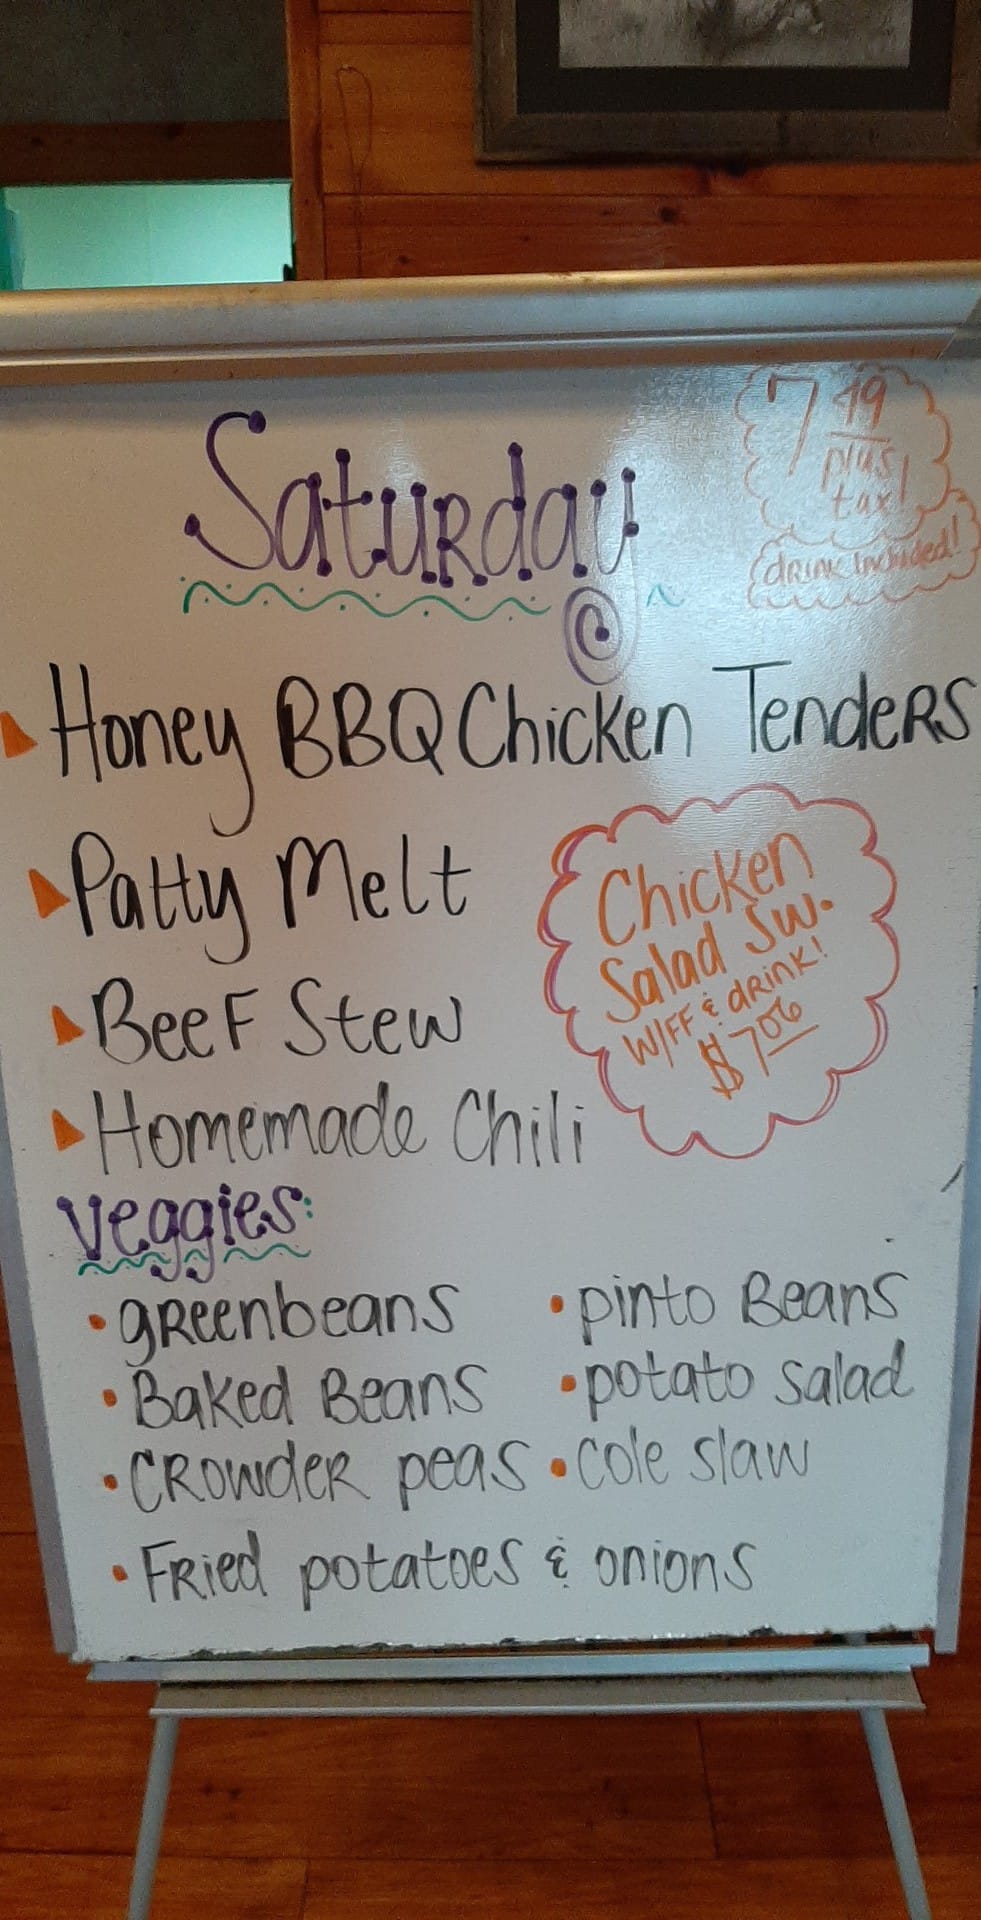 Saturday
7 49
plus
tax!
drink Included!
Honey BBQ Chicken Tenders
Patty Melt
Chicken
Salad Sw.
W/FF & drink!
$7.06
Beef Stew
Homemade Chili
Veggies:
greenbeans
pinto Beans
Baked Beans
potato salad
Crowder peas
cole slaw
Fried potatoes & onions